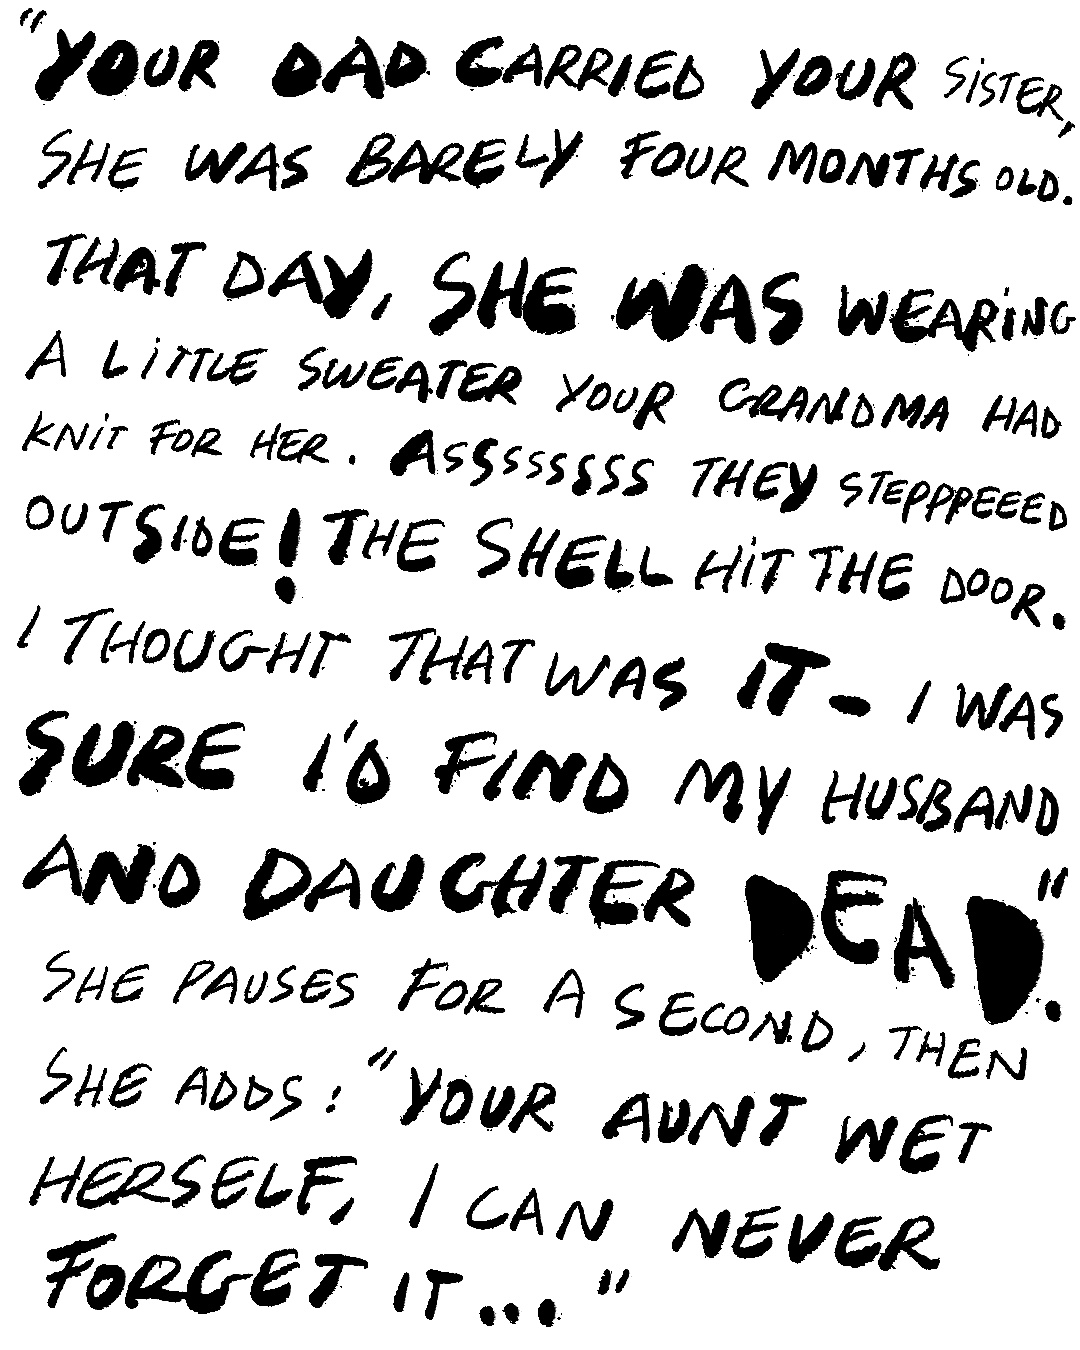 "YOUR DAD CARRIED YOUR SISTER,
SHE WAS BARELY FOUR MONTHS OLD.
THAT DAY, SHE WAS WEARING
A LITTLE SWEATER YOUR GRANDMA HAD
KNIT FOR HER. ASSSSSSSS THEY STEPPPPEEED
OUTSIDE! THE SHELL HIT THE DOOR.
I THOUGHT THAT WAS IT- I WAS
SURE I'D FIND MY HUSBAND
AND DAUGHTER DEAD".
SHE PAUSES FOR A SECOND, THEN
SHE ADDS: "YOUR AUNT WET
HERSELF, I CAN NEVER
FORGET IT..."